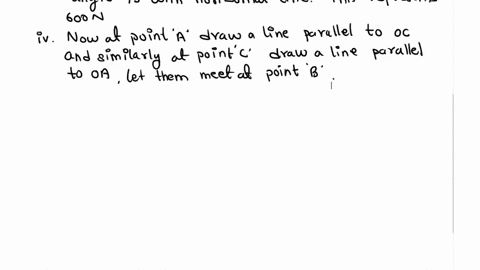 600N
iv. Now at point 'A' draw a line parallel to OC
and similarly at point 'C' draw a line parallel
to OA, let them meet at point 'B'